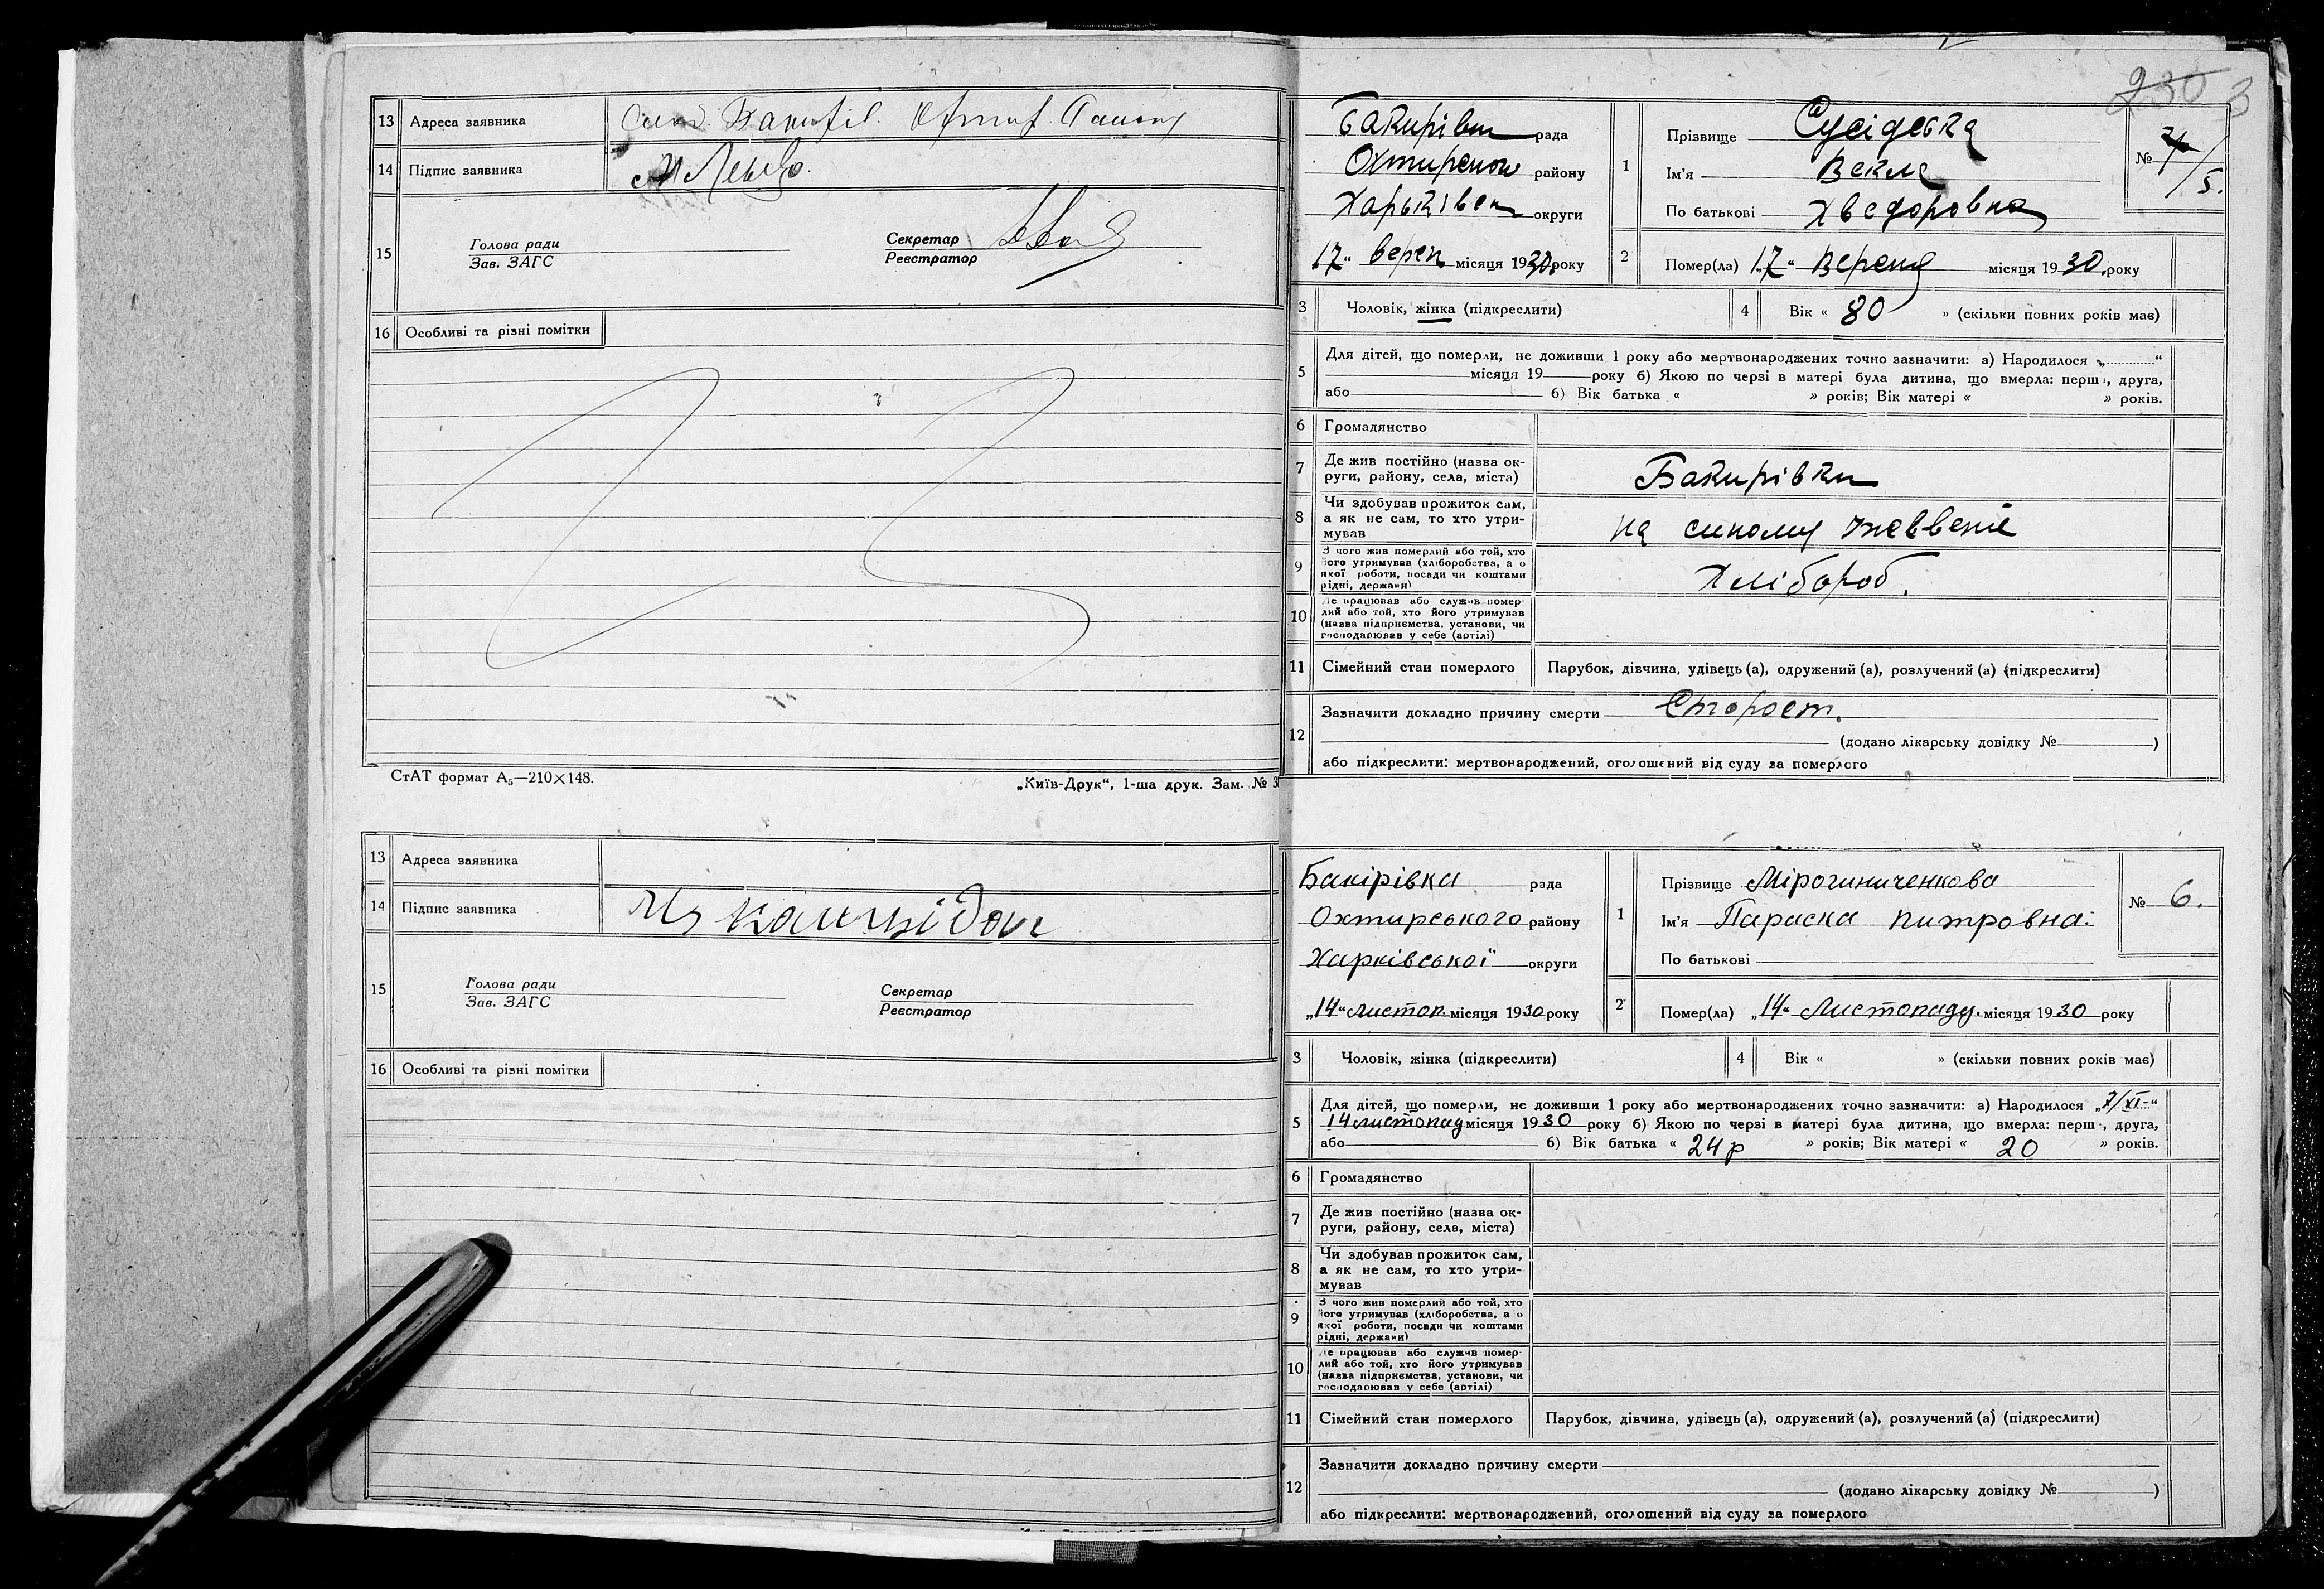 13 Адреса заявника
14 Підпис заявника
15 Голова ради
Зав. ЗАГС
Секретар
Реєстратор
16 Особливі та різні помітки
СтАТ формат А5—210×148.
„Київ-Друк“, 1-ша друк. Зам. № 3
13 Адреса заявника
14 Підпис заявника
15 Голова ради
Зав. ЗАГС
Секретар
Реєстратор
16 Особливі та різні помітки
230 3
Бакирівки рада
району
округи
17“ верен місяця 1930 року
1 Прізвище Сусідська
Ім'я Векла
По батькові Хведоровна
№ 5.
2 Помер(ла) „17“ Вереня місяця 1930 року
3 Чоловік, жінка (підкреслити)
4 Вік « 80 » (скільки повних років має)
5 Для дітей, що померли, не доживши 1 року або мертвонароджених точно зазначити: а) Народилося „ “
місяця 19 року б) Якою по черзі в матері була дитина, що вмерла: перш , друга,
або б) Вік батька « » років; Вік матері « » років.
6 Громадянство
7 Де жив постійно (назва ок-
руги, району, села, міста)
Бакирівки
8 Чи здобував прожиток сам,
а як не сам, то хто утри-
мував
на
9 З чого жив померлий або той, хто
його утримував (хліборобства, а о
якої роботи, посади чи коштами
рідні, держави)
Хлібороб.
10 Де працював або служив помер-
лий або той, хто його утримував
(назва підприємства, установи, чи
господарював у себе (артілі)
11 Сімейний стан померлого
Парубок, дівчина, удівець (а), одружений (а), розлучений (а) (підкреслити)
12 Зазначити докладно причину смерти Старост.
(додано лікарську довідку № )
або підкреслити: мертвонароджений, оголошений від суду за померлого
Бакірівка рада
Охтирського району
Харківської округи
„14“ листоп місяця 1930 року
1 Прізвище Мірогиниченкова
Ім'я Параска питровна
По батькові
№ 6.
2 Помер(ла) „14“ Листопаду місяця 1930 року
3 Чоловік, жінка (підкреслити)
4 Вік « » (скільки повних років має)
5 Для дітей, що померли, не доживши 1 року або мертвонароджених точно зазначити: а) Народилося „7/XI-“
14 листопад місяця 1930 року б) Якою по черзі в матері була дитина, що вмерла: перш , друга,
або б) Вік батька « 24 р » років; Вік матері « 20 » років.
6 Громадянство
7 Де жив постійно (назва ок-
руги, району, села, міста)
8 Чи здобував прожиток сам,
а як не сам, то хто утри-
мував
9 З чого жив померлий або той, хто
його утримував (хліборобства, а о
якої роботи, посади чи коштами
рідні, держави)
10 Де працював або служив помер-
лий або той, хто його утримував
(назва підприємства, установи, чи
господарював у себе (артілі)
11 Сімейний стан померлого
Парубок, дівчина, удівець (а), одружений (а), розлучений (а) (підкреслити)
12 Зазначити докладно причину смерти
(додано лікарську довідку № )
або підкреслити: мертвонароджений, оголошений від суду за померлого